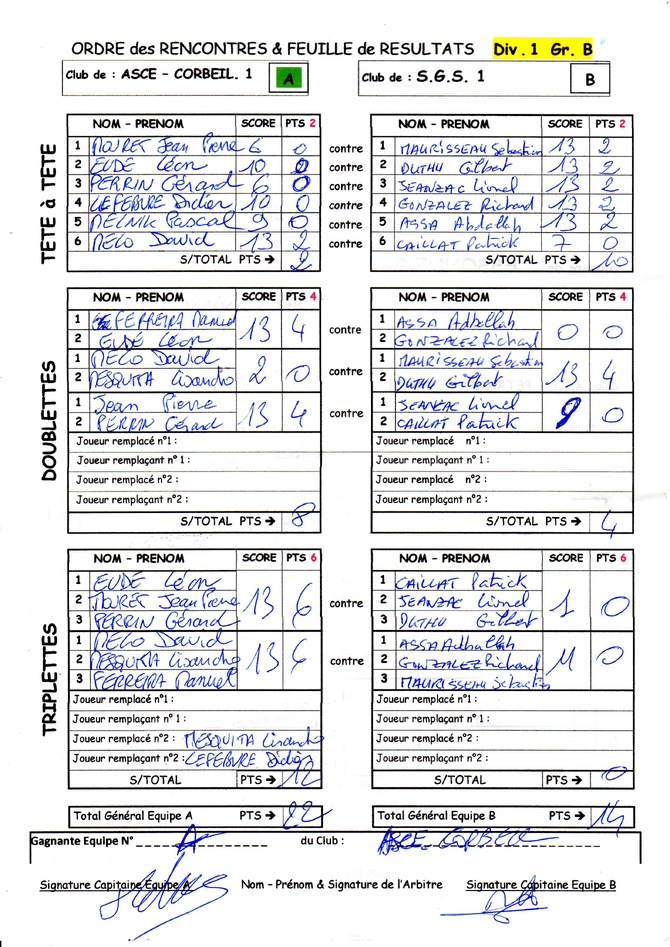 ORDRE des RENCONTRES & FEUILLE de RESULTATS Div.1 Gr. B
Club de : ASCE - CORBEIL. 1 A Club de : S.G.S. 1 B
TÊTE à TÊTE
NOM - PRENOM SCORE PTS 2 NOM - PRENOM SCORE PTS 2
1 MOURET Jean Pierre 6 0 contre 1 MAURISSEAU Sébastien 13 2
2 EUDE Léon 10 0 contre 2 DUTHU Gilbert 13 2
3 PERRIN Gérard 6 0 contre 3 JEANZAC Lionel 13 2
4 LEFEBURE Didier 10 0 contre 4 GONZALEZ Richard 13 2
5 MELNIK Pascal 9 0 contre 5 ASSA Abdallah 13 2
6 MELO David 13 2 contre 6 CAILLAT Patrick 7 0
S/TOTAL PTS → 2 S/TOTAL PTS → 10
DOUBLETTES
NOM - PRENOM SCORE PTS 4 NOM - PRENOM SCORE PTS 4
1 FERREIRA Manuel 13 4 contre 1 ASSA Adballah 0 0
2 EUDE Léon 2 GONZALEZ Richard
1 MELO David 2 0 contre 1 MAURISSEAU Sébastien 13 4
2 MESQUITA Lisandro 2 DUTHU Gilbert
1 Jean Pierre 13 4 contre 1 JEANZAC Lionel 9 0
2 PERRIN Gérard 2 CAILLAT Patrick
Joueur remplacé n°1 : Joueur remplacé n°1 :
Joueur remplaçant n°1 : Joueur remplaçant n°1 :
Joueur remplacé n°2 : Joueur remplacé n°2 :
Joueur remplaçant n°2 : Joueur remplaçant n°2 :
S/TOTAL PTS → 8 S/TOTAL PTS → 4
TRIPLETTES
NOM - PRENOM SCORE PTS 6 NOM - PRENOM SCORE PTS 6
1 EUDE Léon 1 CAILLAT Patrick
2 MOURET Jean Pierre 13 6 contre 2 JEANZAC Lionel 1 0
3 PERRIN Gérard 3 DUTHU Gilbert
1 MELO David 1 ASSA Adballah
2 MESQUITA Lisandro 13 6 contre 2 GONZALEZ Richard 11 0
3 FERREIRA Manuel 3 MAURISSEAU Sébastien
Joueur remplacé n°1 : Joueur remplacé n°1 :
Joueur remplaçant n°1 : Joueur remplaçant n°1 :
Joueur remplacé n°2 : MESQUITA Lisandro Joueur remplacé n°2 :
Joueur remplaçant n°2 : LEFEBURE Didier Joueur remplaçant n°2 :
S/TOTAL PTS → 12 S/TOTAL PTS → 0
Total Général Equipe A PTS → 22 Total Général Equipe B PTS → 14
Gagnante Equipe N° A du Club : ASCE CORBEIL
Signature Capitaine Equipe A Nom - Prénom & Signature de l'Arbitre Signature Capitaine Equipe B